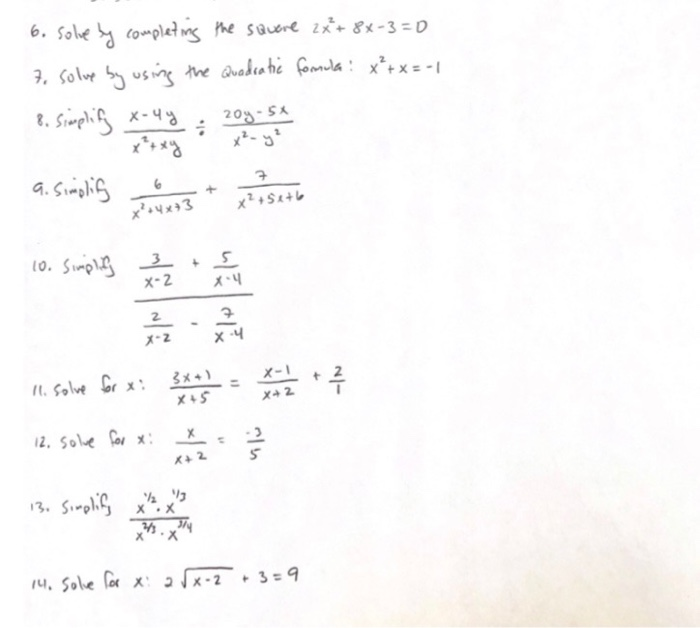 6. Solve by completing the square 2x²+ 8x-3=0
7. Solve by using the Quadratic formula: x²+x=-1
8. Simplify (x-4y)/(x²+xy) ÷ (20y-5x)/(x²-y²)
9. Simplify 6/(x²+4x+3) + 7/(x²+5x+6)
10. Simplify (3/(x-2) + 5/(x-4))/(2/(x-2) - 7/(x-4))
11. Solve for x: (3x+1)/(x+5) = (x-1)/(x+2) + 2/1
12. Solve for x: x/(x+2) = -3/5
13. Simplify (x^1/2 · x^1/3)/(x^2/3 · x^3/4)
14. Solve for x: 2√(x-2) + 3 = 9